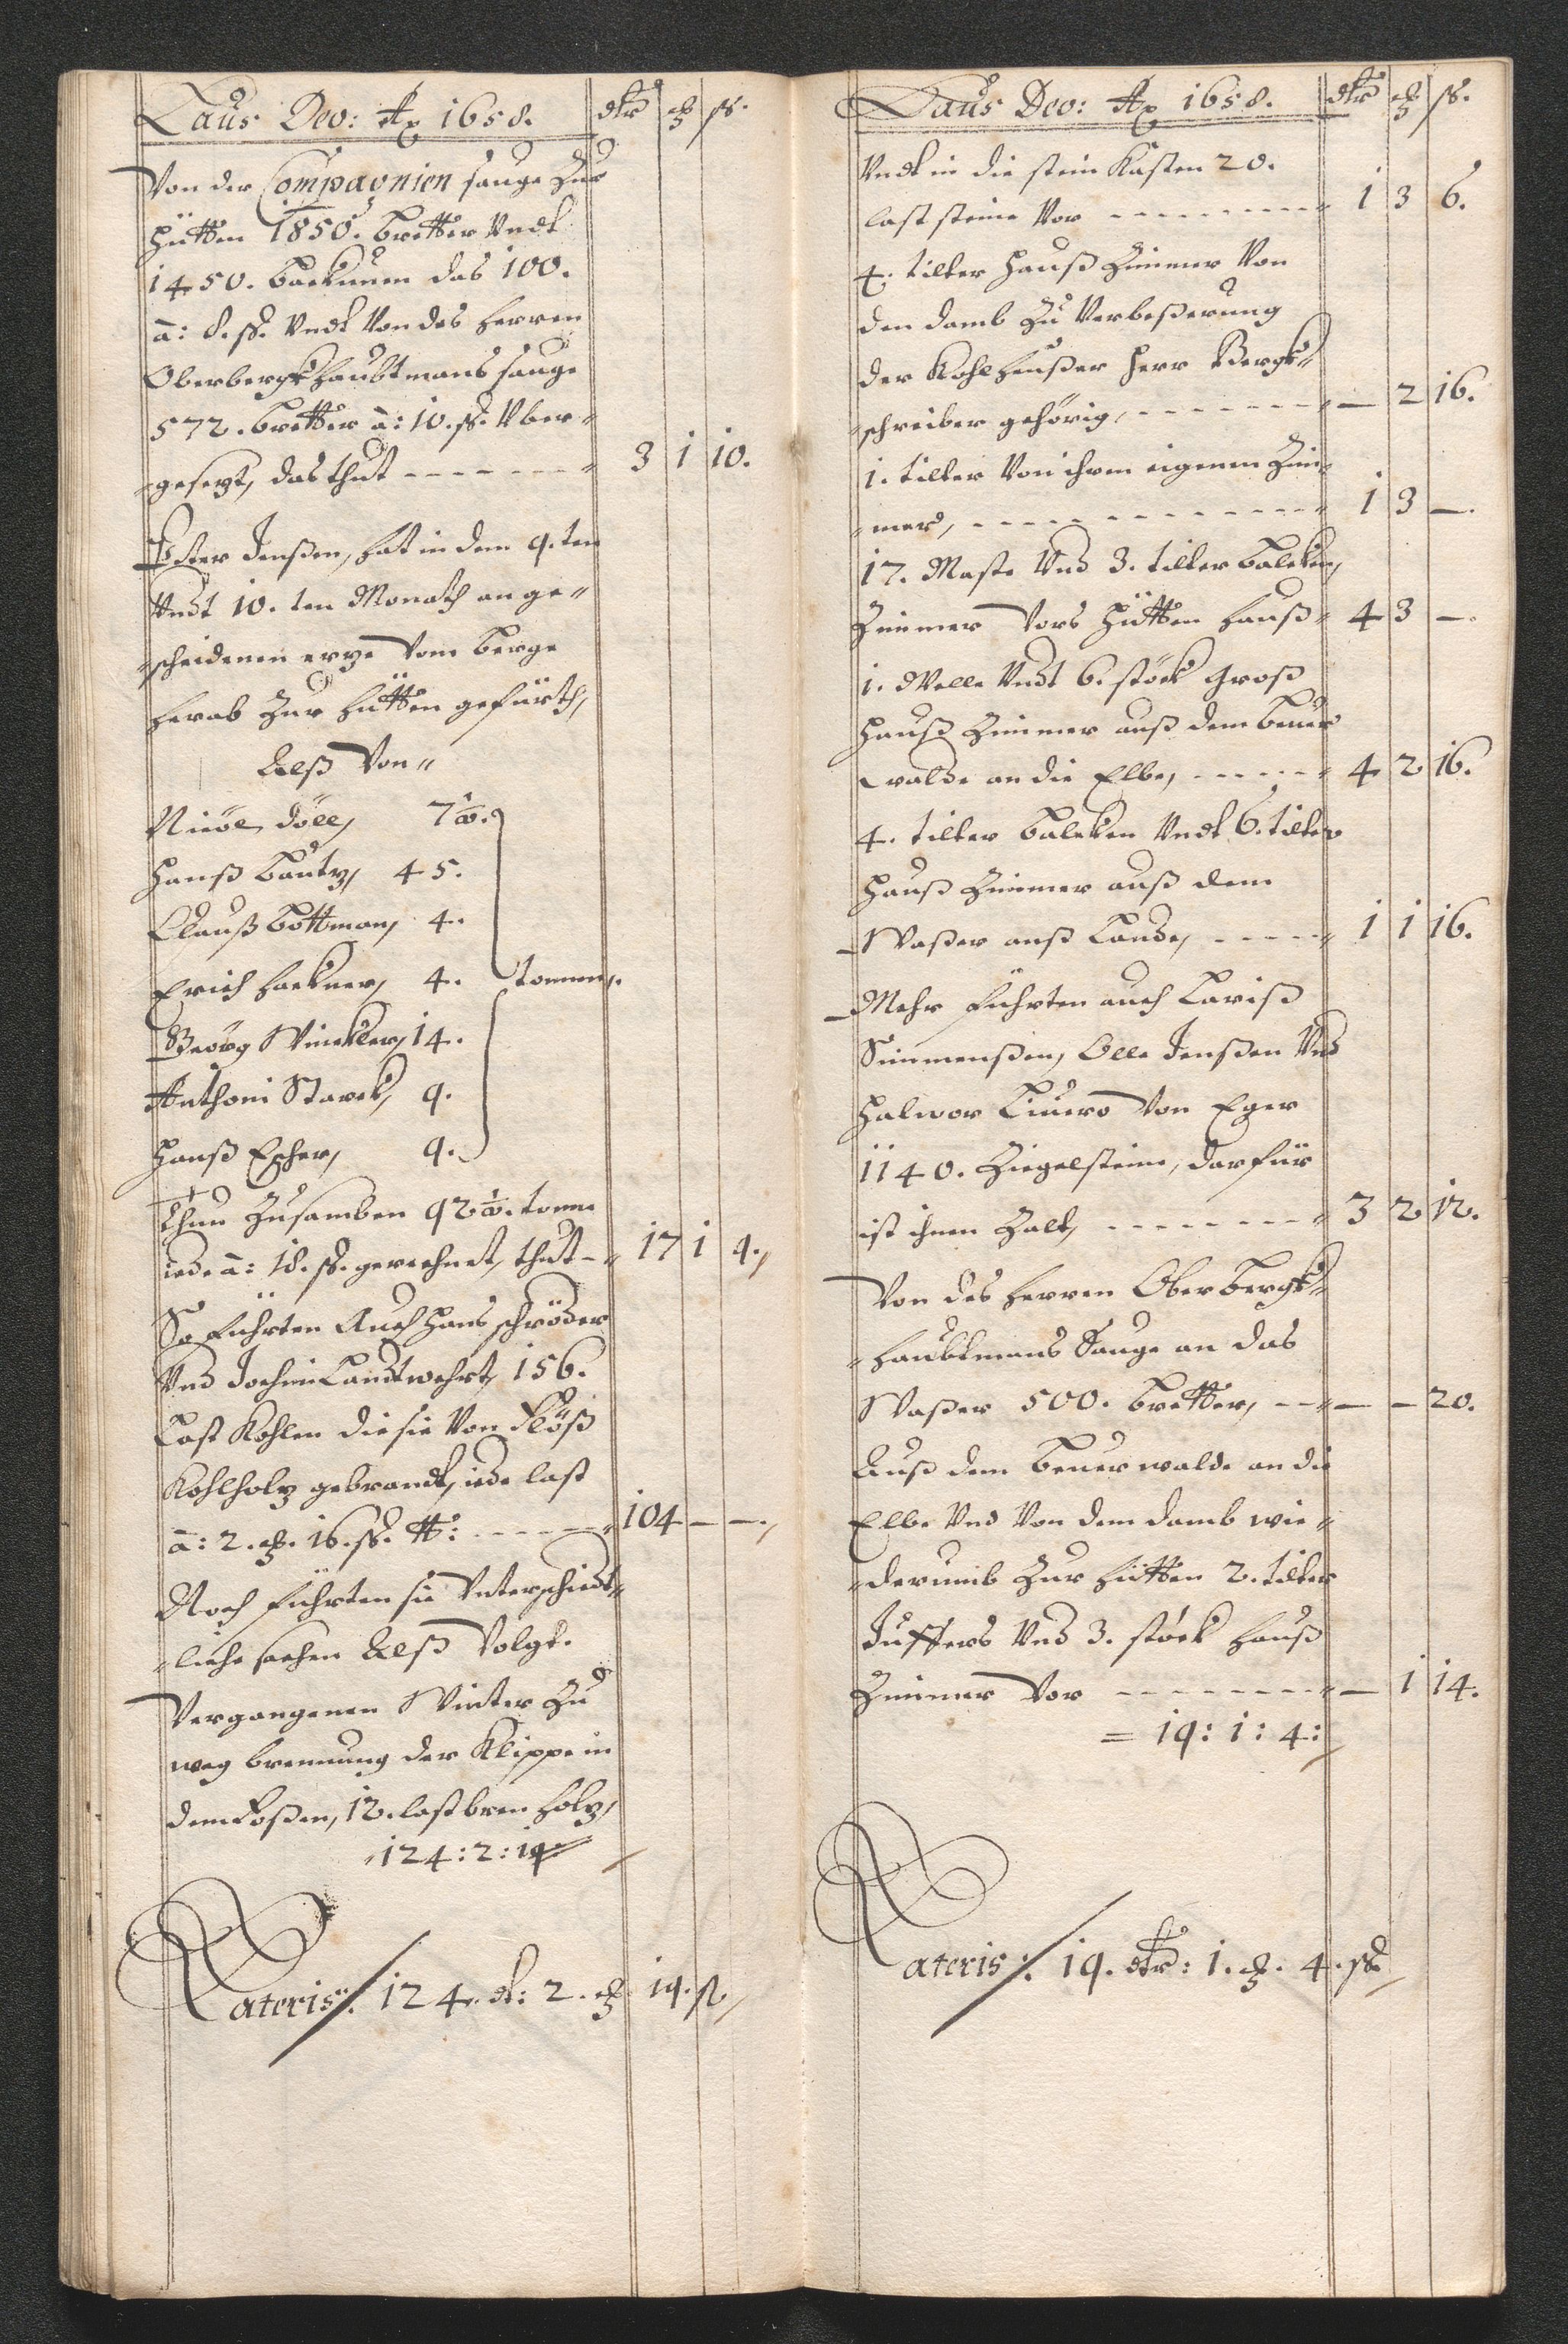 Laus Deo: Ao 1658. dlr ꝗ ß.
Von der Compagnien sauge Zur
Hütten 1850. bretter Vndt
1450. backunen das 100.
à: 8. ß. Vndt Von des herren
Oberbergkhaubtmans sauge
572. bretter à: 10. ß. Vber-
gesezt, das thut 3 1 10.
Peter Jenßen, hat in dem 9. ten
Vndt 10. ten Monath an ge-
scheidenen erze Vom berge
herab Zur hütten geführth,
Alß Von
Nicol Döll, 7 1/2.
Hanß Bautz, 45.
Clauß Bottman, 4.
Erich Hackner, 4. tonnen,
Georg Winckler, 14.
Anthoni Starck, 9.
Hanß Escher, 9.
Thun Zusamben 92 1/2. tonne
iede à: 18. ß. gerechnet, thut 17 1 9.
So führten Auch Hans schröder
Vnd Jochim Landtwehrt, 156.
Last Kohlen die sie Von Flöß
Kohlholz gebrandt, iede last
à: 2. ꝗ. 16. ß. tt: 104 — —.
Noch führten sie Vnterschiedt-
liche sachen Alß Volgt.
Vergangenen Winter Zu
weg brennung der Klippe in
dem Foßen, 12. last bren holz,
124: 2: 19
Lateris: 124. dl: 2. ꝗ 19. ß.
Laus Deo: Ao 1658. dlr ꝗ ß.
Vndt in die stein Kasten 20.
last steine Vor 1 3 6.
4. tilter Hauß Zimmer Von
den damb Zu Verbeßerung
der Kohlheußer Herr Bergk-
schreiber gehörig, — 2 16.
1. tilter Von ihrem eigenen Zim-
mer, 1 3 —.
17. Maste Vnd 3. tilter balcken,
Zimmer Vors Hütten hauß 4 3 —.
1. Welle Vndt 6. stöck Groß
Hauß Zimmer auß dem beuer
walde an die Elbe, 4 2 16.
4. tilter balcken Vndt 6. tilter
Hauß Zimmer auß dem
Waßer anß Lande, 1 1 16.
Mehr führten auch Lariß
Simmenßen, Olle Jenßen Vnd
Halwor Liuero Von Eger
1140. Ziegelsteine, darfür
ist ihnen Zalt, 3 2 12.
Von des herren Ober Bergk-
haubtmans Sauge an das
Waßer 500. bretter, — — 20.
Auß dem beuer walde an die
Elbe Vnd Von dem damb wie-
derumb Zur hütten 2. tilter
Juffers Vnd 3. stöck hauß
Zimmer Vor — 1 14.
= 19: 1: 4:
Lateris: 19. dlr: 1. ꝗ. 4. ß